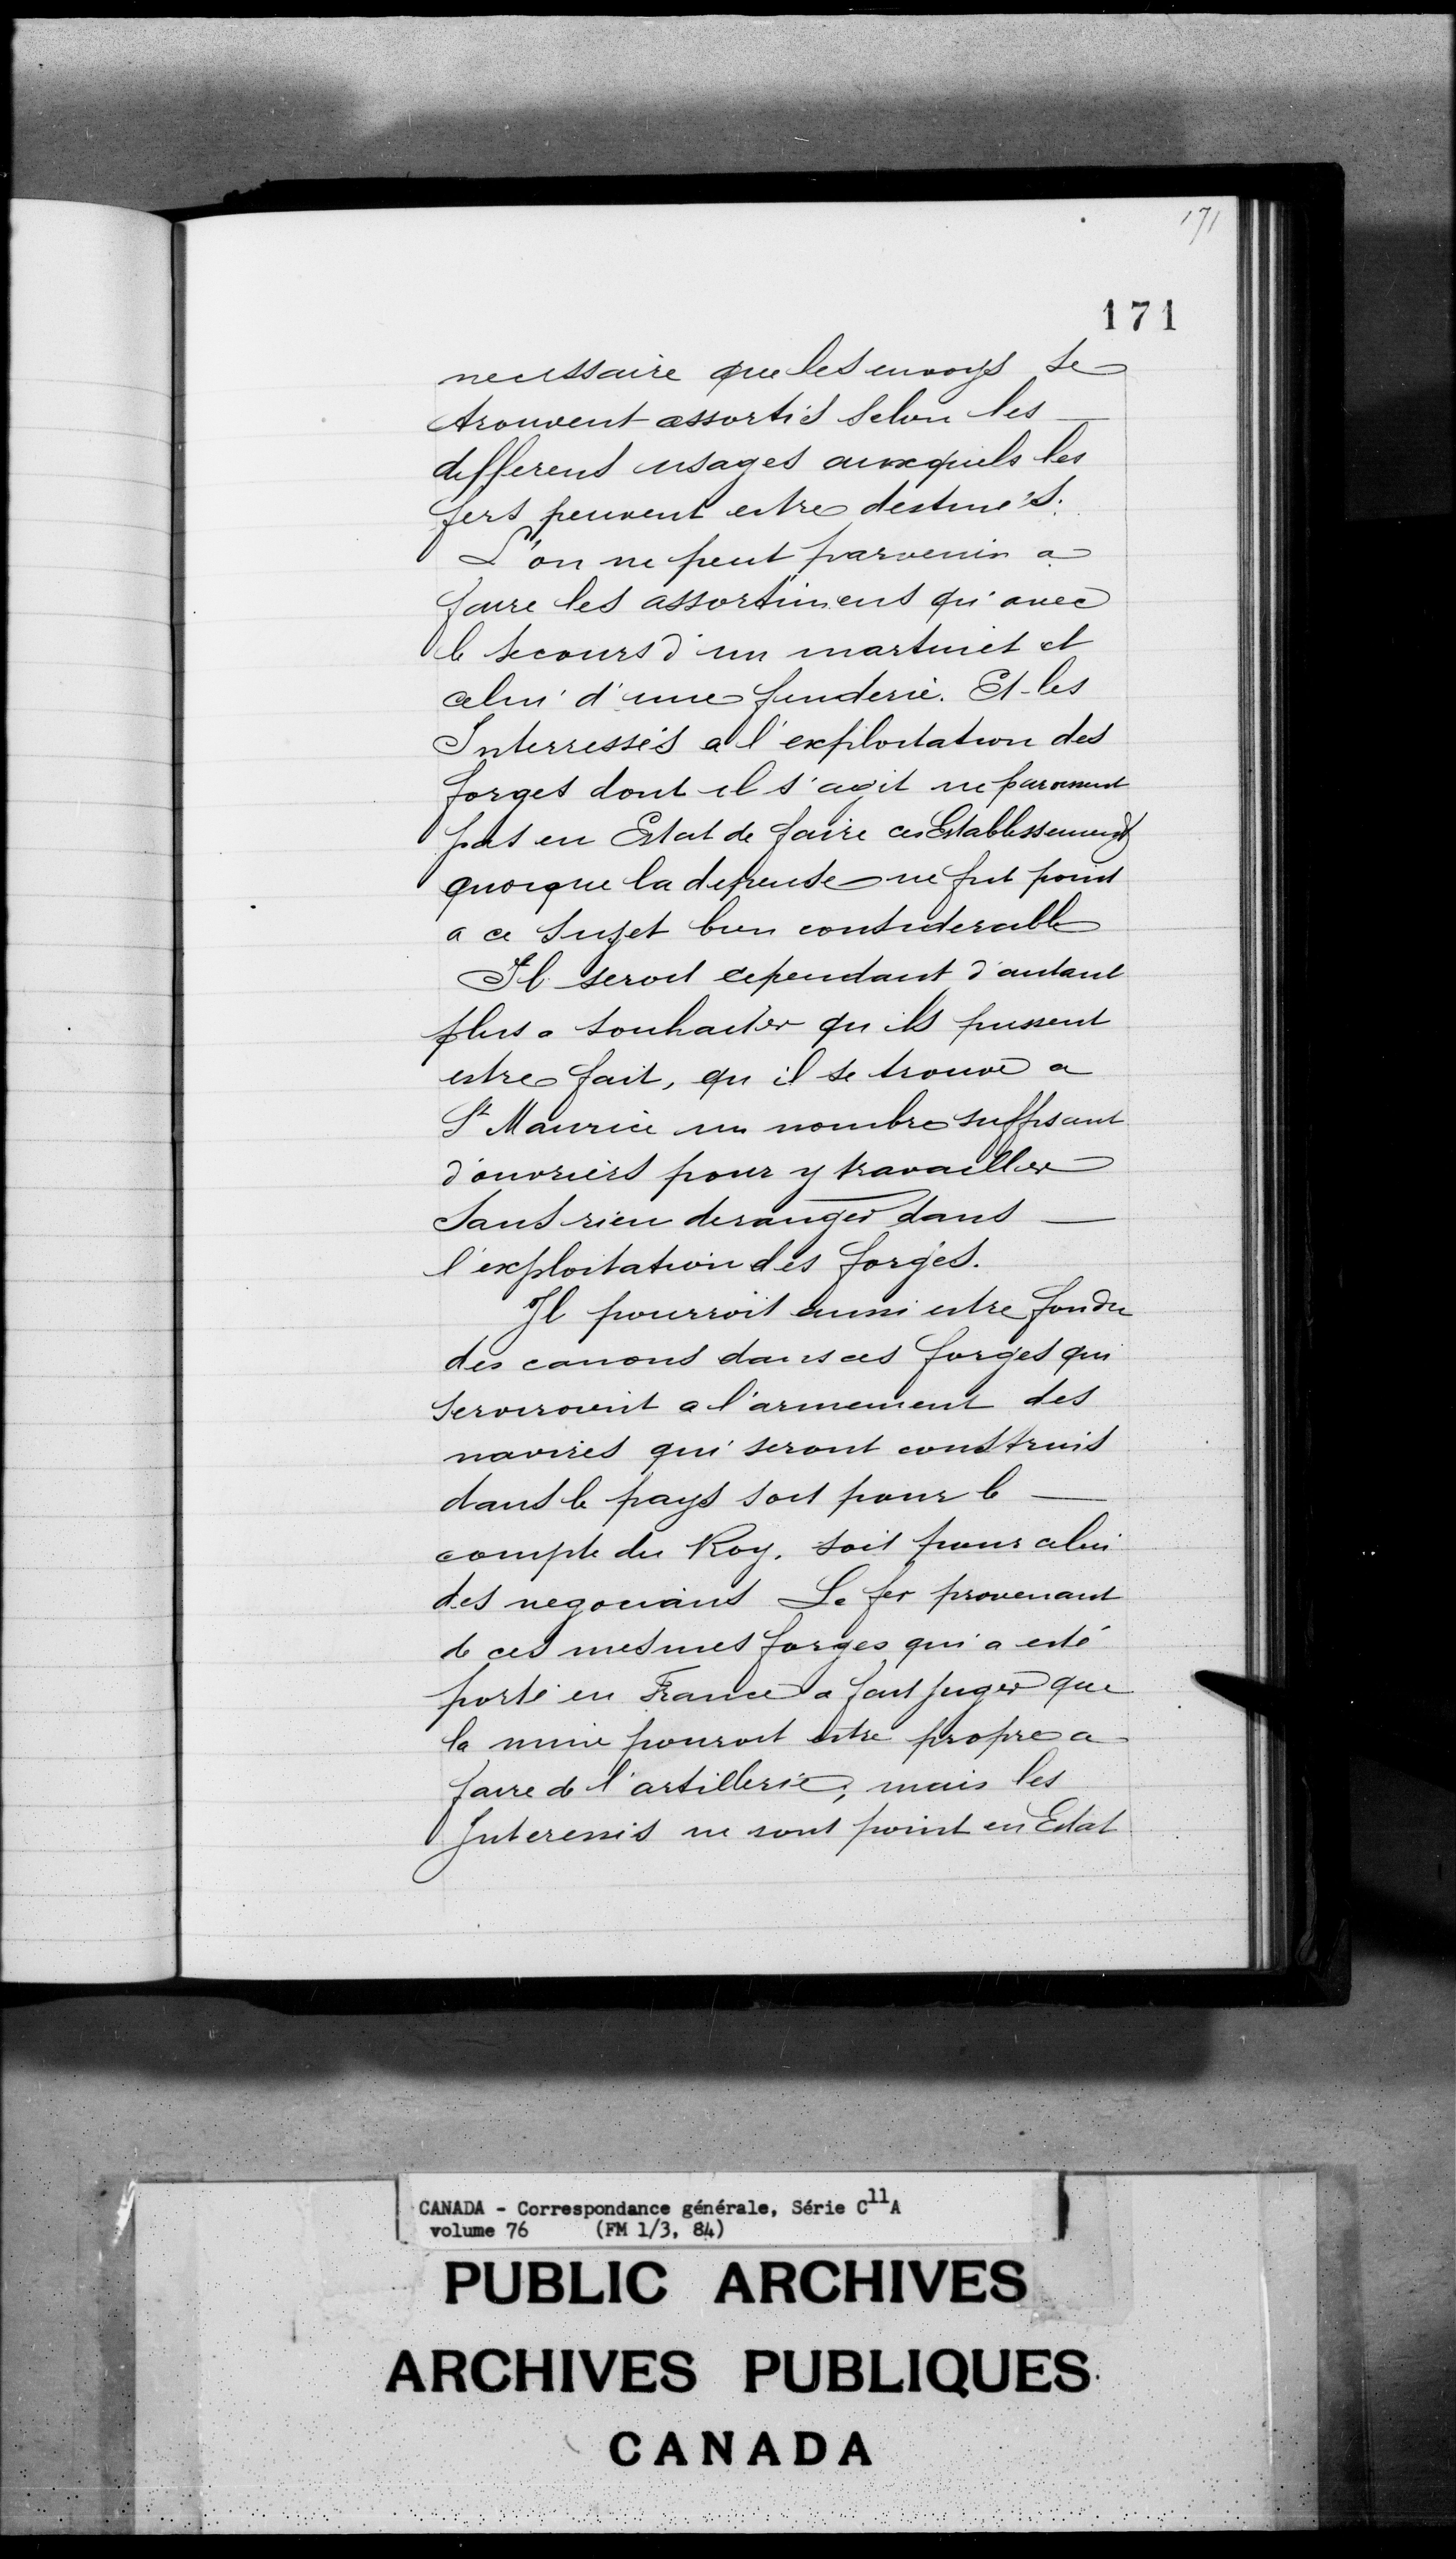 171
171
necessaire que les envoys se
trouvent assortis selon les
differens usages auxquels les
fers peuvent estre destinés.
L'on ne peut parvenir a
faire les assortimens qu'avec
le secours d'un martinet et
celui d'une fenderie. Et les
Interressés a l'exploitation des
forges dont il s'agit ne paroissent
pas en Estat de faire ces Establissements
quoique la depense ne fut point
a ce sujet bien considerable
Il seroit cependant d'autant
plus a souhaiter qu'ils pussent
estre fait, qu'il se trouve a
St Maurice un nombre suffisant
d'ouvriers pour y travailler
sans rien deranger dans
l'exploitation des forges.
Il pourroit aussi estre fondu
des canons dans ces forges qui
serviroient a l'armement des
navires qui seront construis
dans le pays soit pour le
compte du Roy, soit pour celui
des negocians Le fer provenant
de ces mesmes forges qui a esté
porté en France a fait juger que
la mine pouroit estre propre a
faire de l'artillerie, mais les
Interessés ne sont point en Estat
CANADA - Correspondance générale, Série C11A
volume 76 (FM 1/3, 84)
PUBLIC ARCHIVES
ARCHIVES PUBLIQUES
CANADA